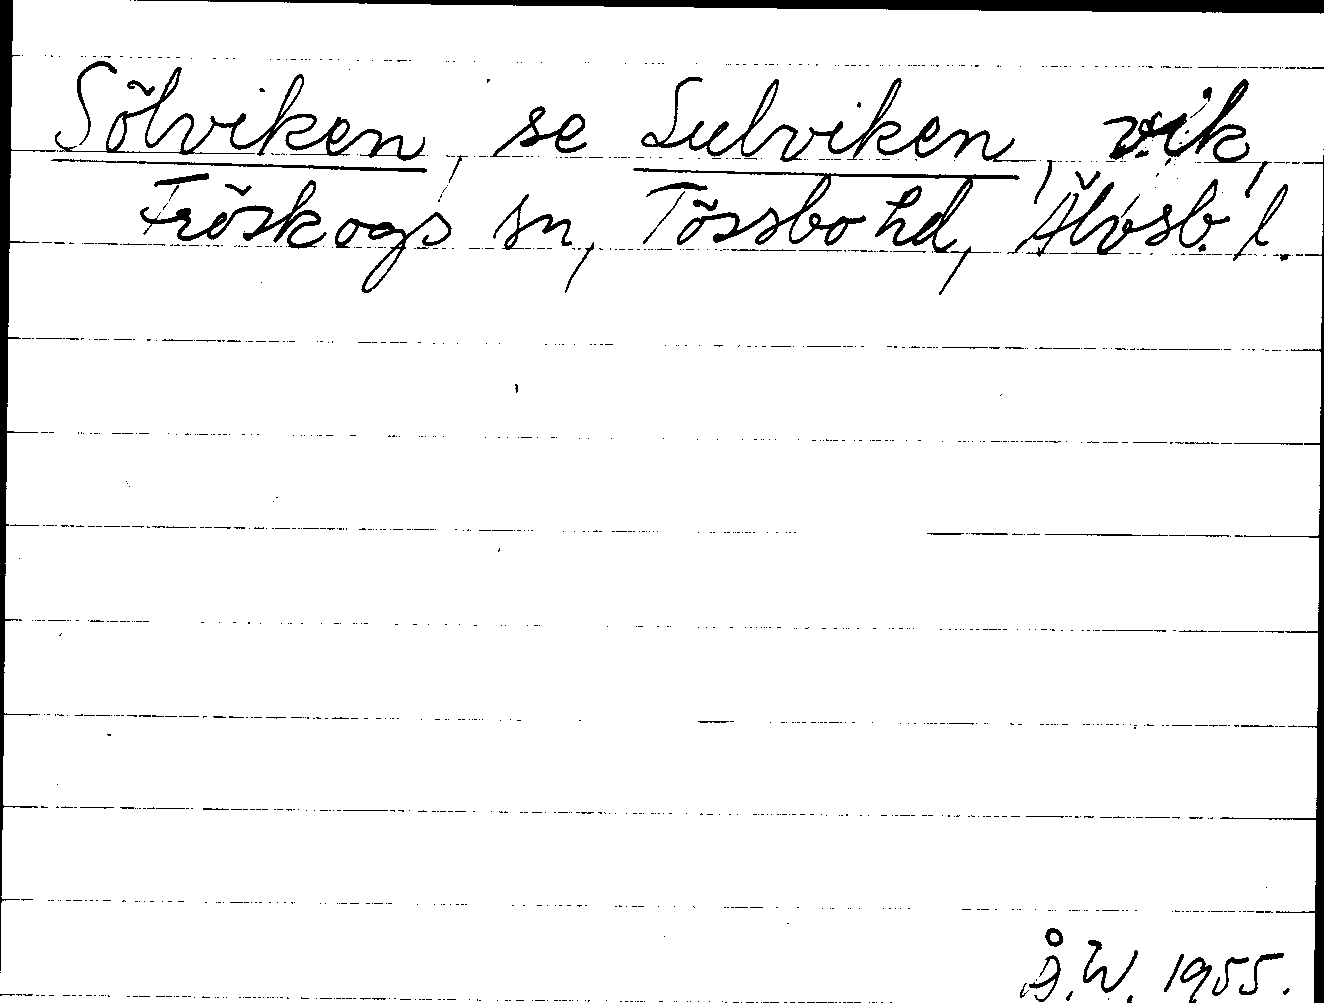 Sölviken, se Sulviken, vik,
Fröskogs sn, Tössbo hd, Älvsb. l.
Å.W. 1955.